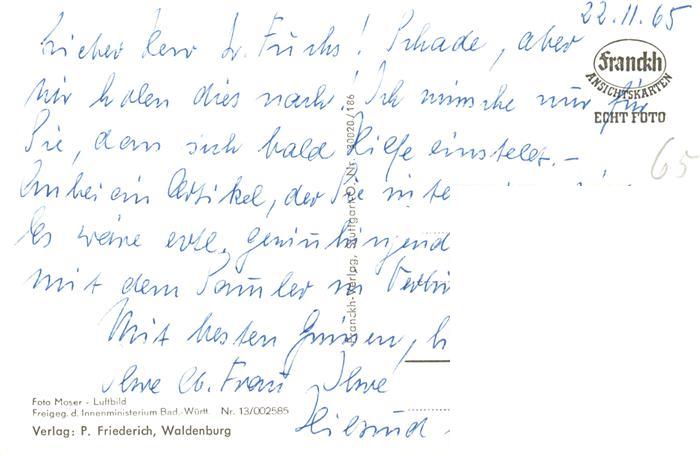 22.11.65
Lieber Herr Dr. Fuchs! Schade, aber
wir holen dies nach! Ich wünsche nur für
Sie, dass sich bald Hilfe einstellt. –
Anbei ein Artikel, der Sie inte
Es wäre evtl. gewinnbringend
mit dem Sammler in Verbin
Mit besten Grüssen,
Ihre lb. Frau Ihre
Franckh
ANSICHTSKARTEN
ECHT FOTO
65
Franckh-Verlag, Stuttgart-O, Nr. 30020/186
Foto Moser - Luftbild
Freigeg. d. Innenministerium Bad.-Württ. Nr. 13/002585
Verlag: P. Friederich, Waldenburg